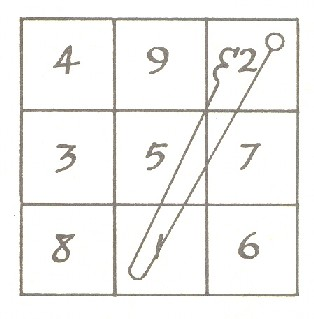 4 9 2
3 5 7
8 1 6